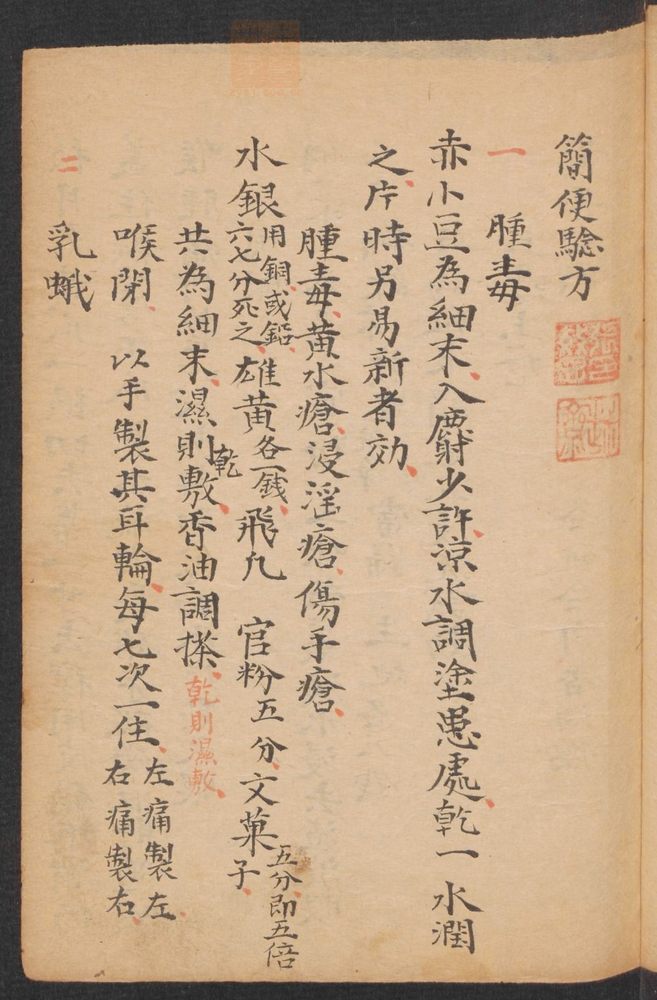 簡便驗方
一 腫毒
赤小豆為細末、入麝少許、涼水調塗患處、乾一水潤
之片時另易新者効、
腫毒、黃水瘡、浸淫瘡、傷手瘡、
水銀用銅或鉛、六七分死之、雄黃各一錢、飛凡 官粉五分、文菓子五分、即五倍
共為細末、濕則乾敷、香油調搽、乾則濕敷、
二 喉閉、 以手製其耳輪、每七次一住、左痛製左、右痛製右、
乳蛾